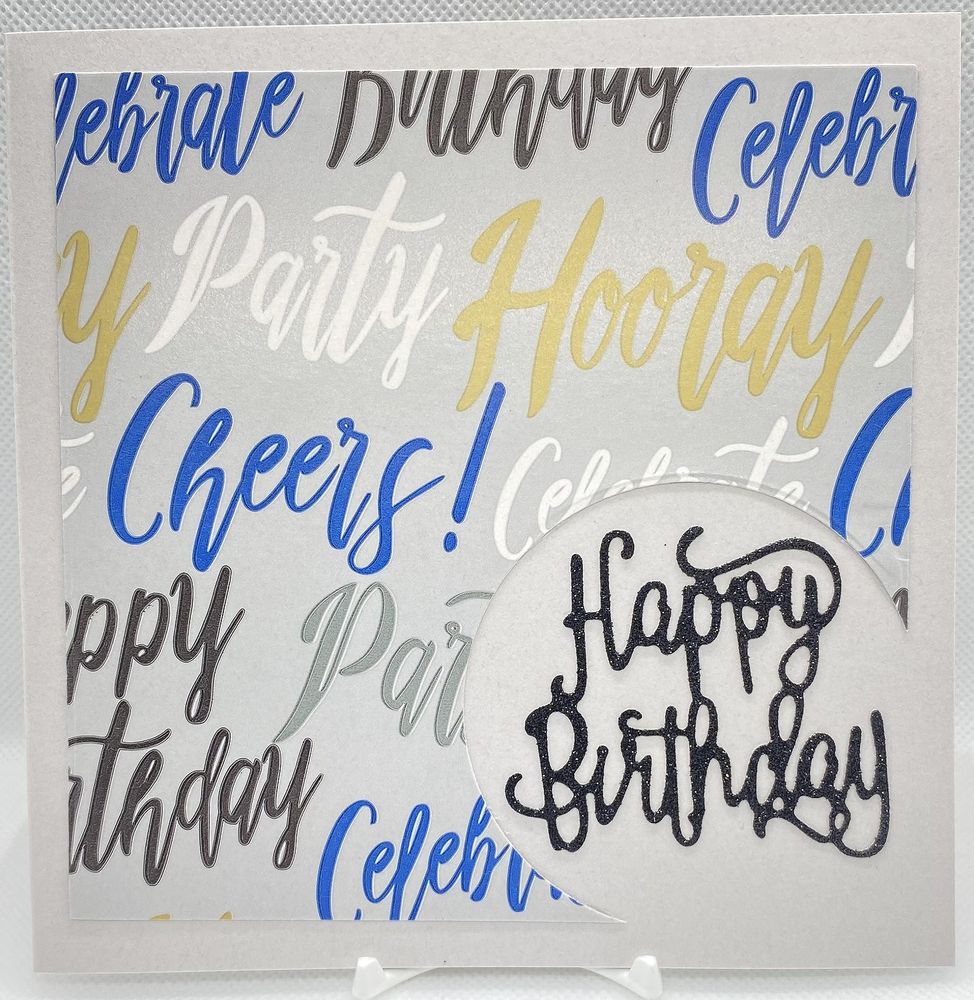 elebrate Birthday Celebr
y Party Hooray
e Cheers! Celebrate C
appy Par
rthday
Celebr
Happy
Birthday